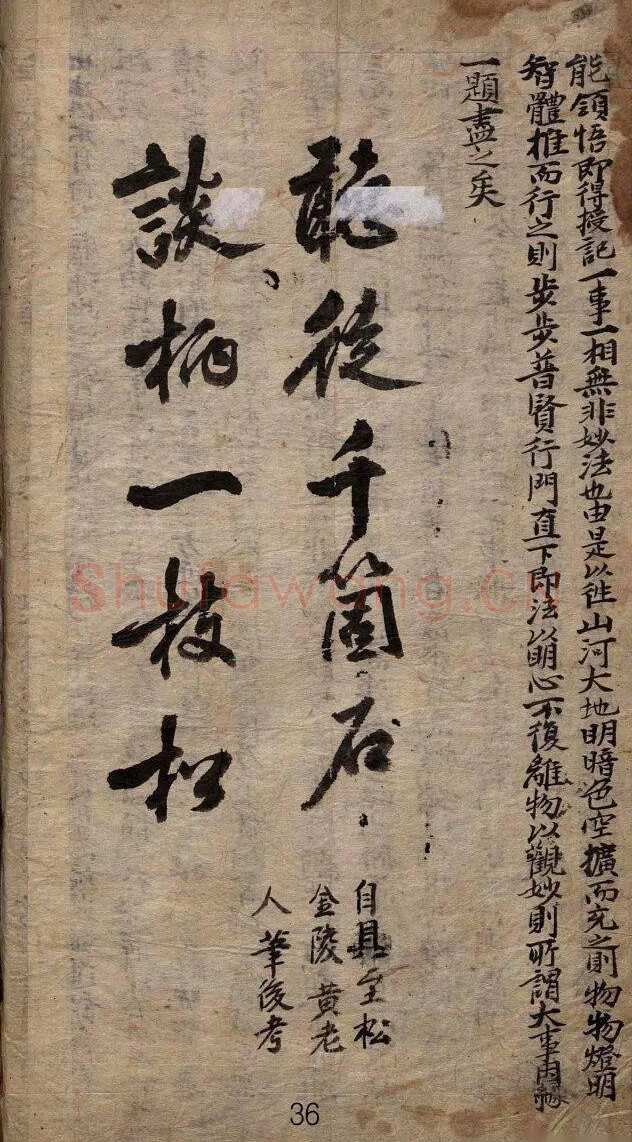 能領悟即得授記一事一相無非妙法也由是以往山河大地明暗色空擴而充之則物物燈明
智體推而行之則步步普賢行門直下即法以明心不復離物以觀妙則所謂大事因緣
一題盡之矣
聽從千箇石
談柄一枝松
自具全松
金陵黃老
人筆後考
36